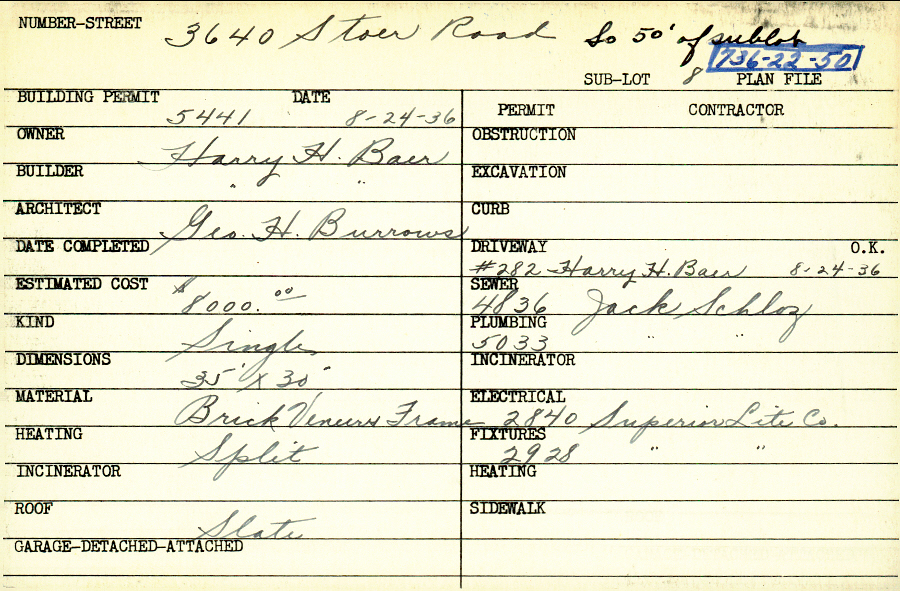 NUMBER-STREET 3640 Stoer Road So 50' of sublot
736-22-50
SUB-LOT 8 PLAN FILE
BUILDING PERMIT DATE PERMIT CONTRACTOR
5441 8-24-36
OWNER Harry H. Baer OBSTRUCTION
BUILDER " " EXCAVATION
ARCHITECT Geo. H. Burrows CURB
DATE COMPLETED DRIVEWAY O.K.
#282 Harry H. Baer 8-24-36
ESTIMATED COST $8000.00 SEWER
4836 Jack Schloz
KIND Single PLUMBING
5033 " "
DIMENSIONS 35' X 30' INCINERATOR
MATERIAL Brick Veneer & Frame ELECTRICAL
2840 Superior Lite Co.
HEATING Split FIXTURES
2928 " "
INCINERATOR HEATING
ROOF Slate SIDEWALK
GARAGE-DETACHED-ATTACHED